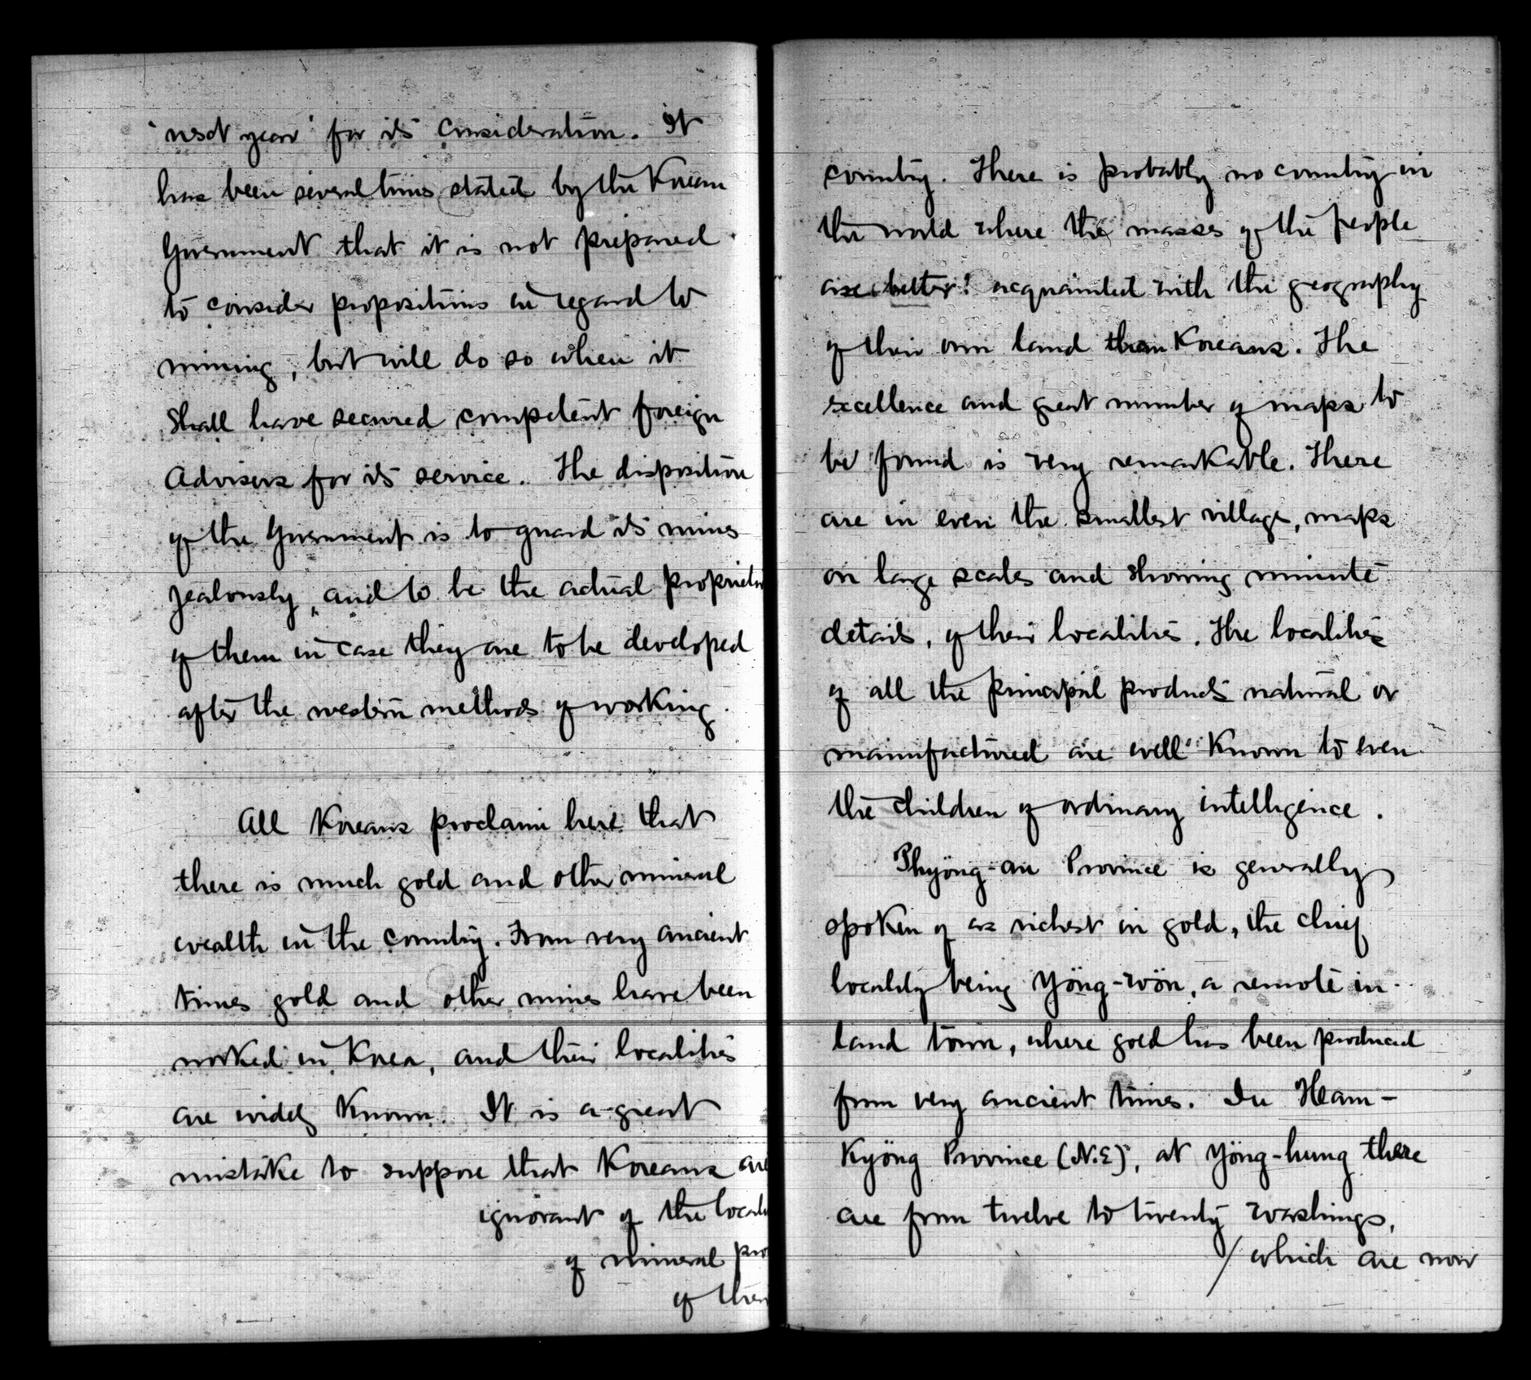 "next year" for its consideration. It
has been several times stated by the Korean
Government that it is not prepared
to consider propositions in regard to
mining, but will do so when it
shall have secured competent foreign
Advisers for its service. The disposition
of the Government is to guard its mines
jealously, and to be the actual proprietor
of them in case they are to be developed
after the western methods of working.
All Koreans proclaim here that
there is much gold and other mineral
wealth in the country. From very ancient
times gold and other mines have been
worked in Korea, and their localities
are widely known. It is a great
mistake to suppose that Koreans are
ignorant of the locali
of mineral pro
of their
country. There is probably no country in
the world where the masses of the people
are better acquainted with the geography
of their own land than Koreans. The
excellence and great number of maps to
be found is very remarkable. There
are in even the smallest village, maps
on large scales and showing minute
details, of their localities. The localities
of all the principal products natural or
manufactured are well known to even
the children of ordinary intelligence.
Phyöng-an Province is generally
spoken of as richest in gold, the chief
locality being Yöng-wön, a remote in-
land town, where gold has been produced
from very ancient times. In Ham-
Kyöng Province (N.E), at Yöng-hung there
are from twelve to twenty washings,
/ which are now